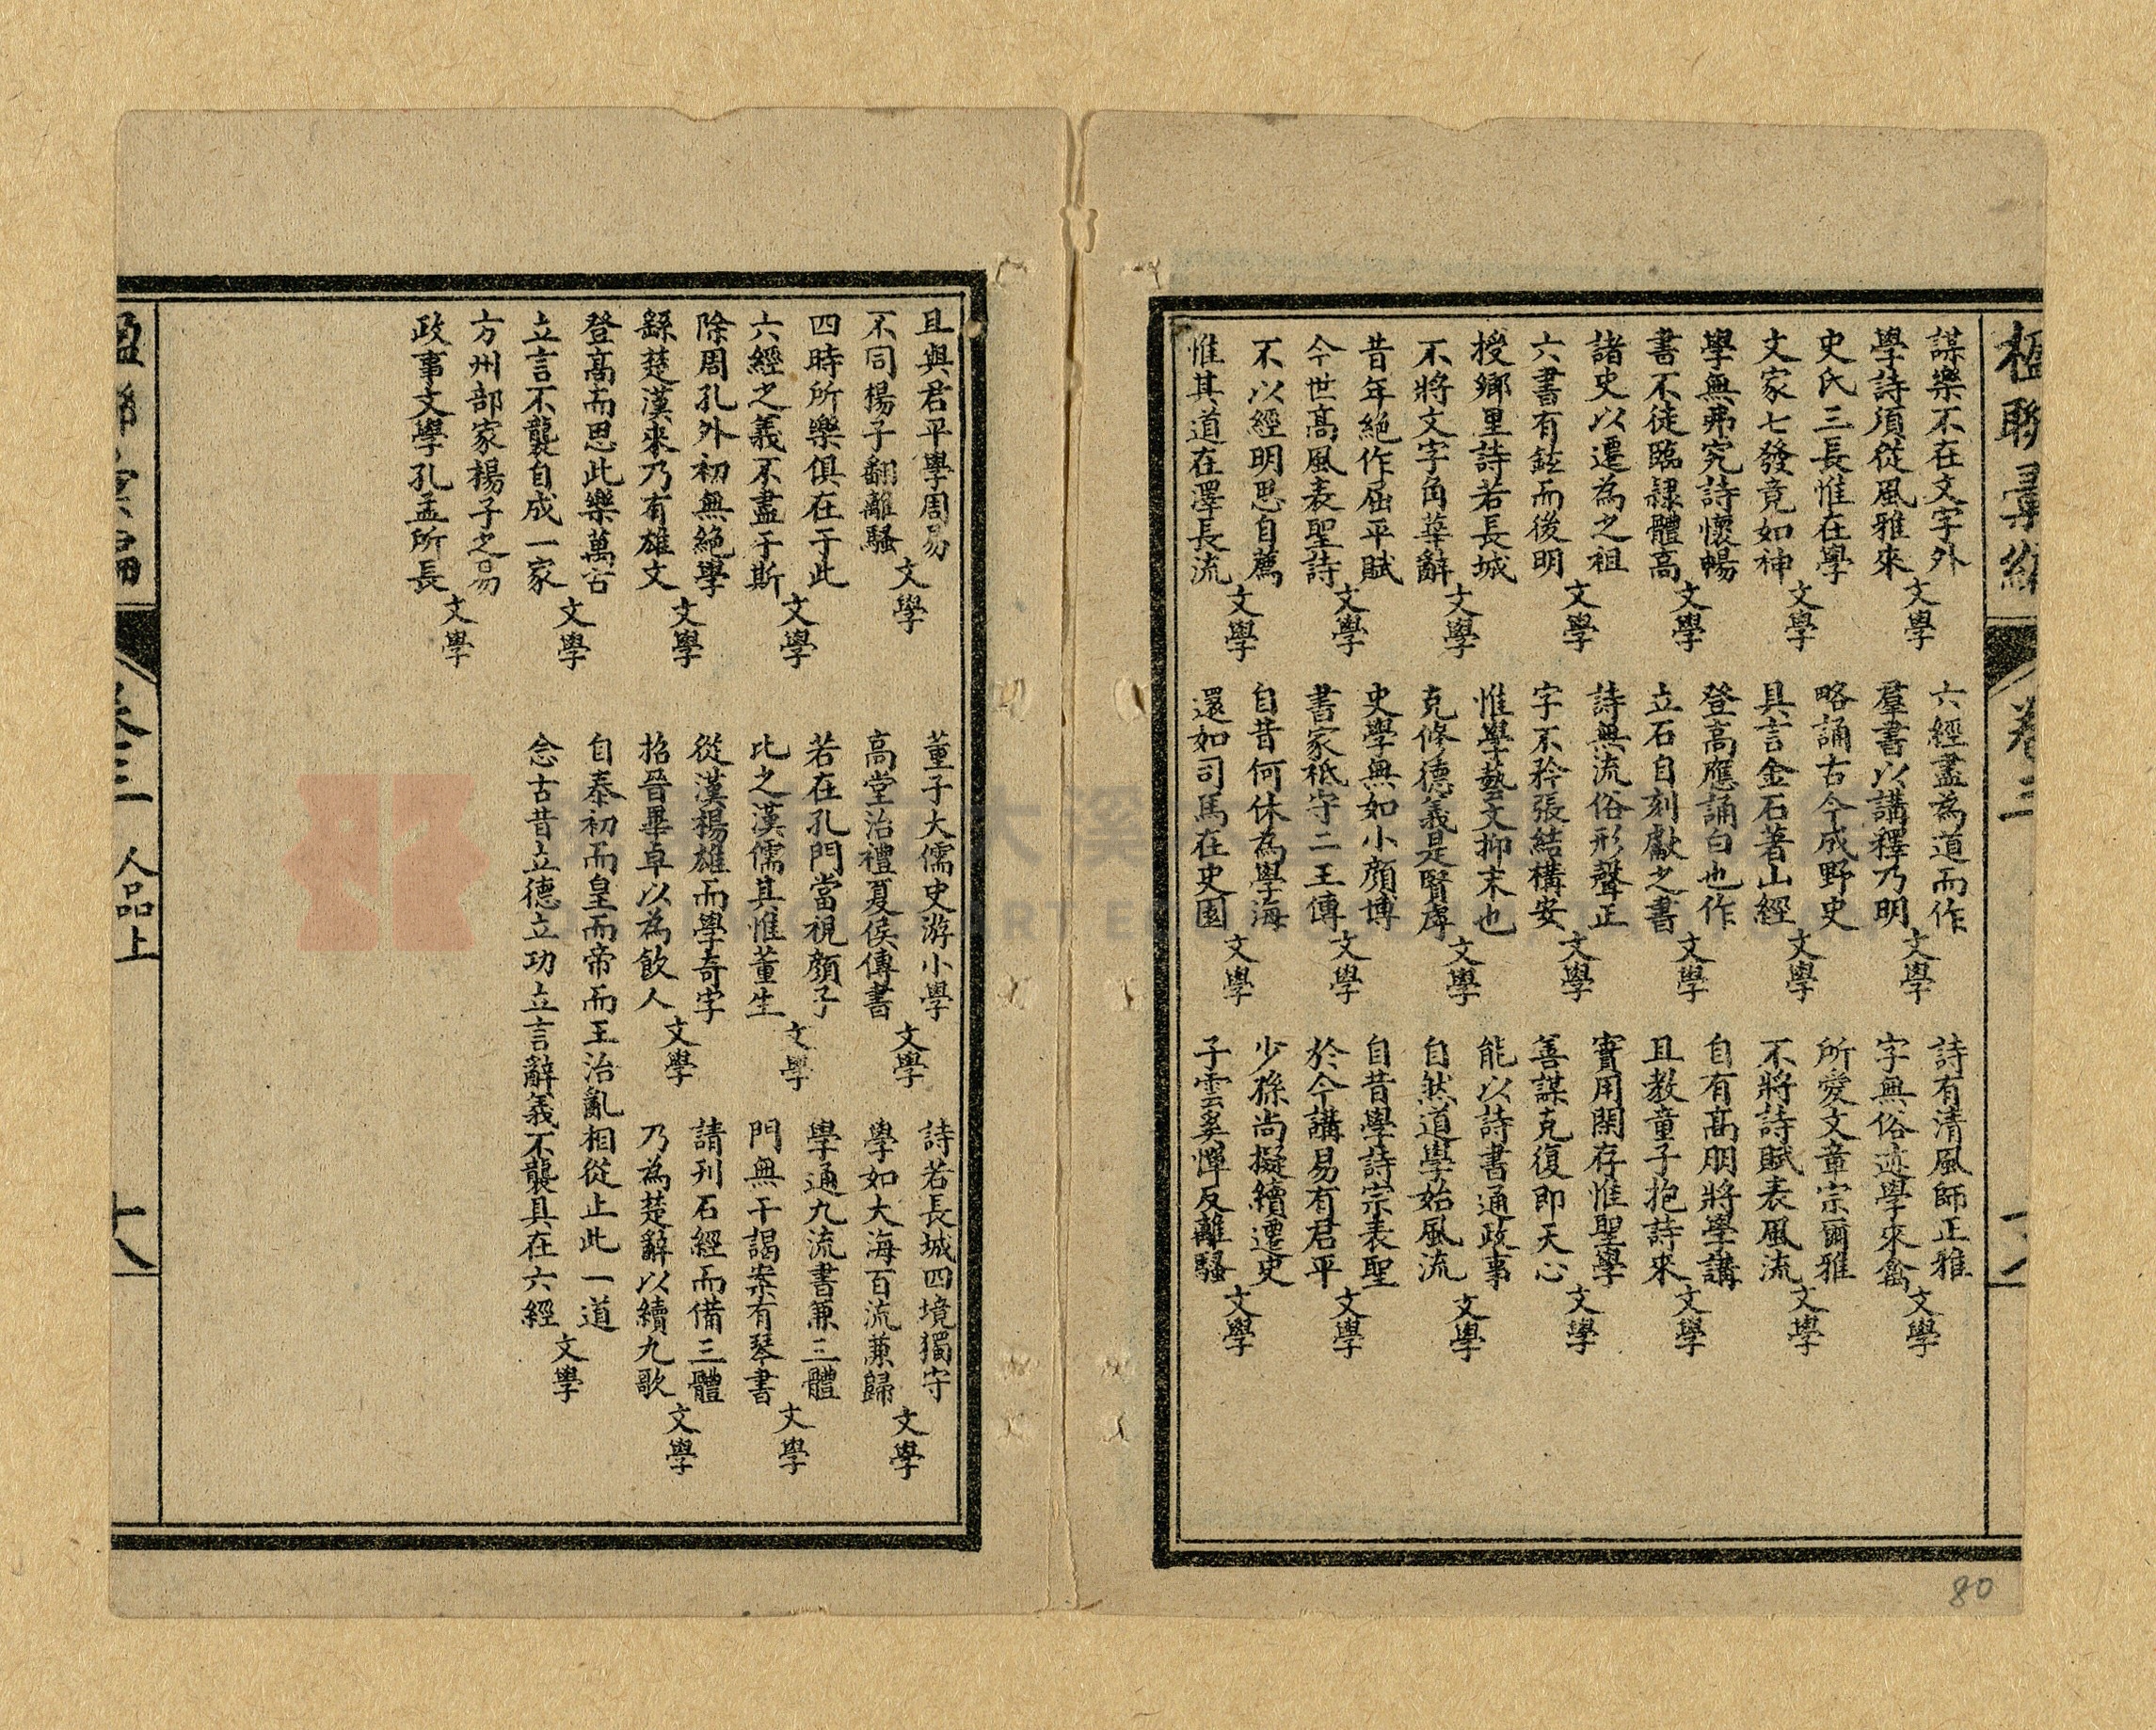 楹聯彙編
卷三
謀樂不在文字外
學詩須從風雅來
文學
史氏三長惟在學
文家七發竟如神
文學
學無弗究詩懷暢
書不徒臨隸體高
文學
諸史以遷為之祖
六書有鉉而後明
文學
授鄉里詩若長城
不將文字角華辭
文學
昔年絕作屈平賦
今世高風表聖詩
文學
不以經明思自薦
惟其道在澤長流
文學
六經盡為道而作
羣書以講釋乃明
文學
略誦古今成野史
具言金石著山經
文學
登高應誦白也作
立石自刻獻之書
文學
詩無流俗形聲正
字不矜張結構安
文學
惟學藝文抑末也
克修德義是賢虖
文學
史學無如小顏博
書家祗守二王傳
文學
自昔何休為學海
還如司馬在史園
文學
詩有清風師正雅
字無俗迹學來禽
文學
所愛文章宗爾雅
不將詩賦表風流
文學
自有高朋將學講
且教童子抱詩來
文學
實用閑存惟聖學
善謀克復即天心
文學
能以詩書通政事
自然道學始風流
文學
自昔學詩宗表聖
於今講易有君平
文學
少孫尚擬續遷史
子雲奚憚反離騷
文學
且與君平學周易
不同楊子翻離騷
文學
四時所樂俱在于此
六經之義不盡于斯
文學
除周孔外初無絕學
繇楚漢來乃有雄文
文學
登高而思此樂萬古
立言不襲自成一家
文學
方州部家楊子之易
政事文學孔孟所長
文學
董子大儒史游小學
高堂治禮夏侯傳書
文學
若在孔門當視顏子
比之漢儒其惟董生
文學
從漢楊雄而學奇字
招晉畢卓以為飲人
文學
詩若長城四境獨守
學如大海百流兼歸
文學
學通九流書兼三體
門無干謁案有琴書
文學
請刊石經而備三體
乃為楚辭以續九歌
文學
自泰初而皇而帝而王治亂相從止此一道
念古昔立德立功立言辭義不襲具在六經
文學
卷三
人品上
十八
80